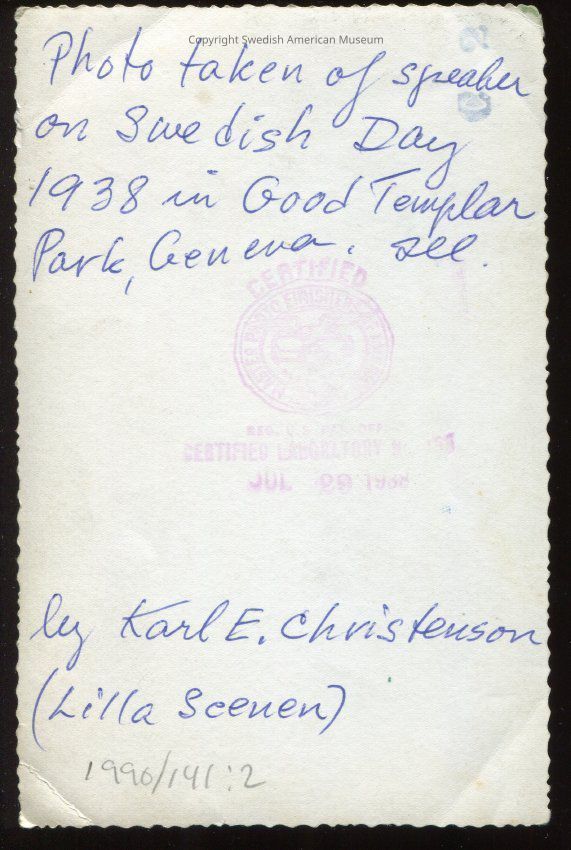 Copyright Swedish American Museum
Photo taken of speaker
on Swedish Day
1938 in Good Templar
Park, Geneva. Ill.
CERTIFIED
MASTER PHOTO FINISHERS OF AMERICA
REG. U.S. PAT. OFF.
CERTIFIED LABORATORY
JUL 29 1938
by Karl E. Christenson
(Lilla Scenen)
1996/141:2